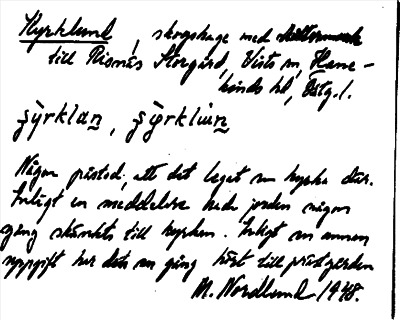 Kyrklund, skogshage med
till Risnäs Storgård, Vists sn, Hane-
kinds hd, Östg. l.
şyrklan, şyrklun
Någon påstod, att det legat en kyrka där.
Enligt en meddelare hade jorden någon
gång skänkts till kyrkan. Enligt en annan
uppgift har det en gång hört till prästgården
M. Nordlund 1948.